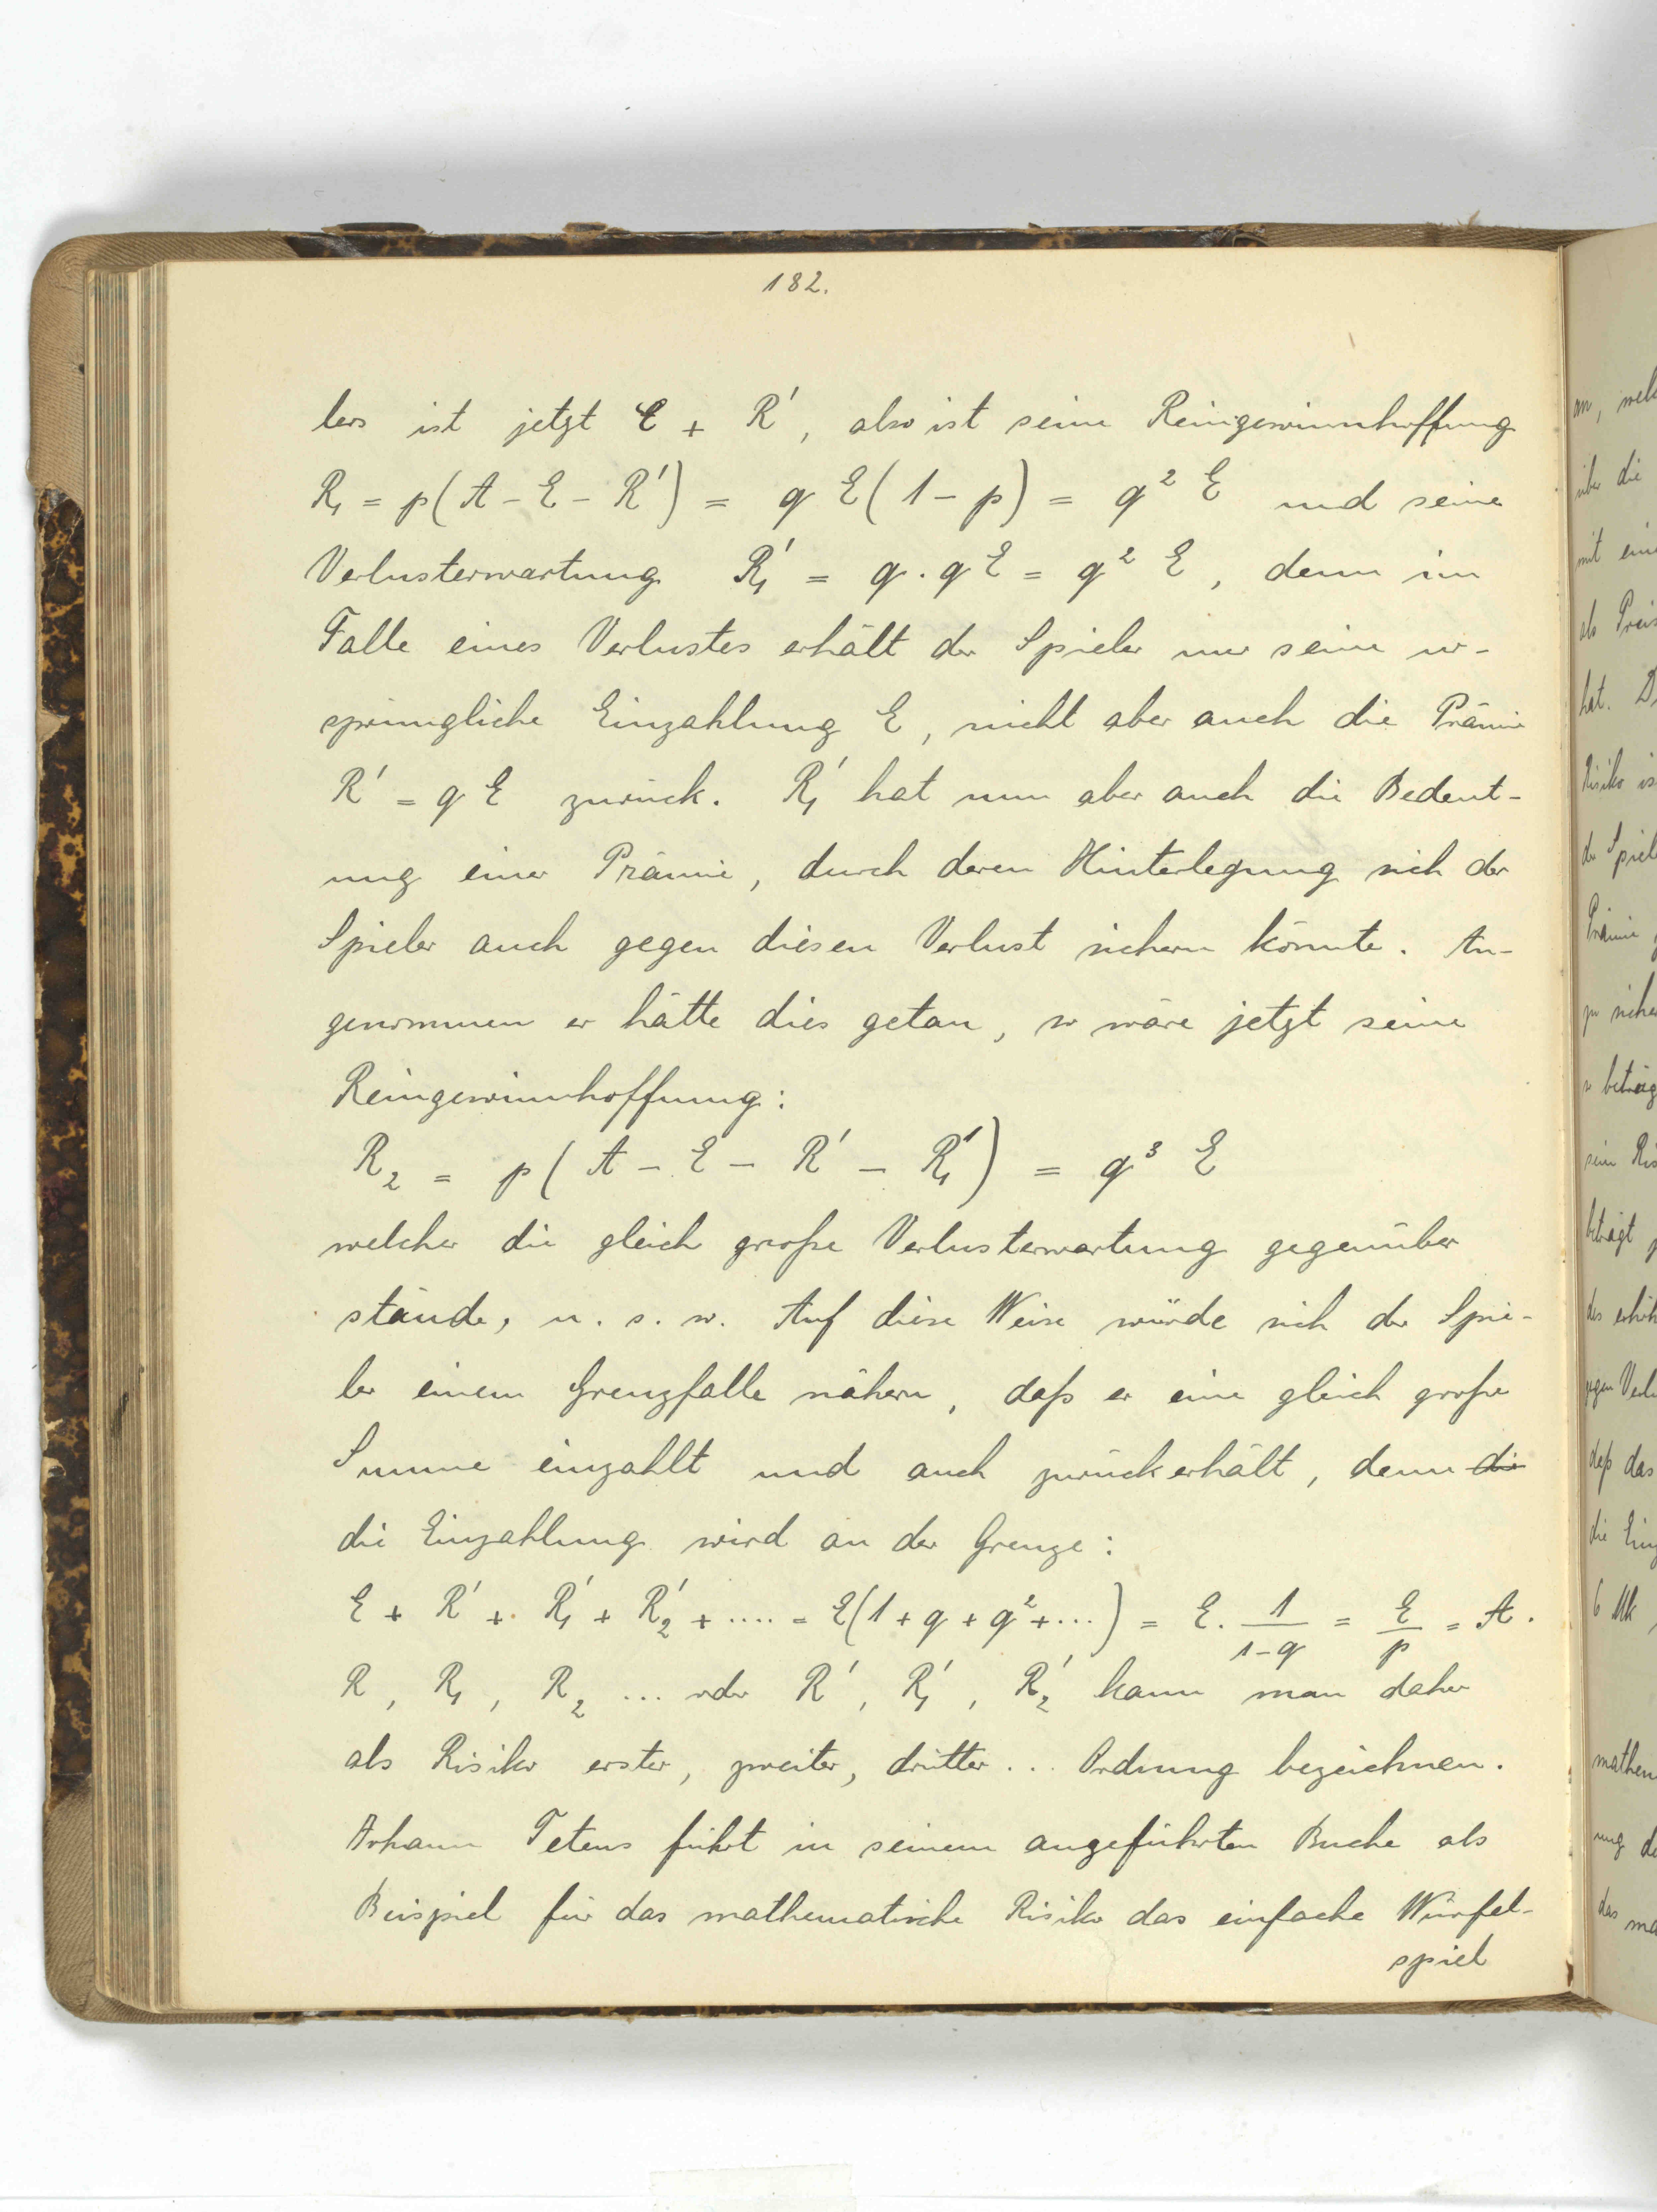 182.
lers ist jetzt E + R', also ist seine Reingewinnhoffnung
R₁ = p(A - E - R') = q E(1 - p) = q² E und seine
Verlusterwartung R₁' = q . q E = q² E, denn im
Falle eines Verlustes erhält der Spieler nur seine ur-
sprüngliche Einzahlung E, nicht aber auch die Prämie
R' = q E zurück. R₁' hat nun aber auch die Bedeut-
ung einer Prämie, durch deren Hinterlegung sich der
Spieler auch gegen diesen Verlust sichern könnte. An-
genommen er hätte dies getan, so wäre jetzt seine
Reingewinnhoffnung:
R₂ = p(A - E - R' - R₁') = q³ E
welcher die gleich große Verlusterwartung gegenüber
stände, u. s. w. Auf diese Weise würde sich der Spie-
ler einem Grenzfalle nähern, daß er eine gleich große
Summe einzahlt und auch zurückerhält, denn die
die Einzahlung wird an der Grenze:
E + R' + R₁' + R₂' + .... = E(1 + q + q² + ...) = E . 1/(1-q) = E/p = A.
R, R₁, R₂ ... oder R', R₁', R₂' kann man daher
als Risiko erster, zweiter, dritter ... Ordnung bezeichnen.
Johann Tetens führt in seinem angeführten Buche als
Beispiel für das mathematische Risiko das einfache Würfel-
spiel